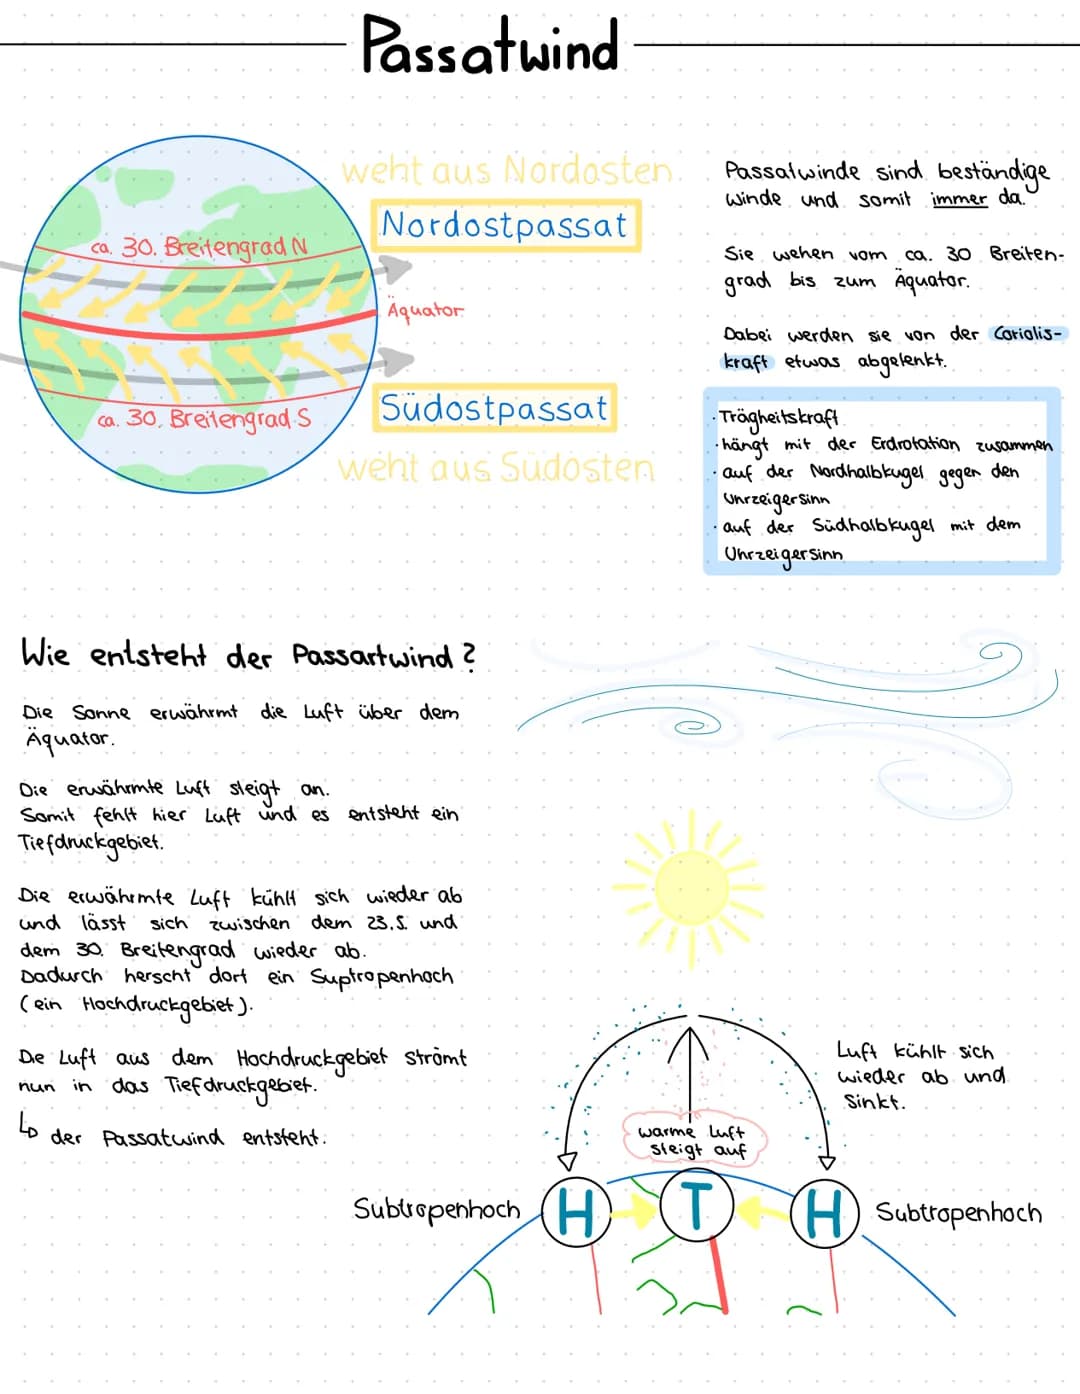 Passatwind
weht aus Nordosten
Nordostpassat
ca. 30. Breitengrad N
Äquator
Südostpassat
ca. 30. Breitengrad S
weht aus Südosten
Passatwinde sind beständige
Winde und somit immer da.
Sie wehen vom ca. 30 Breiten-
grad bis zum Äquator.
Dabei werden sie von der Coriolis-
kraft etwas abgelenkt.
· Trägheitskraft
· hängt mit der Erdrotation zusammen
· auf der Nordhalbkugel gegen den
Uhrzeigersinn
· auf der Südhalbkugel mit dem
Uhrzeigersinn
Wie entsteht der Passartwind?
Die Sonne erwährmt die Luft über dem
Äquator.
Die erwährmte Luft steigt an.
Somit fehlt hier Luft und es entsteht ein
Tiefdruckgebiet.
Die erwährmte Luft kühlt sich wieder ab
und lässt sich zwischen dem 23.5. und
dem 30. Breitengrad wieder ab.
Dadurch herscht dort ein Suptropenhoch
(ein Hochdruckgebiet).
De Luft aus dem Hochdruckgebiet strömt
nun in das Tiefdruckgebiet.
↳ der Passatwind entsteht.
Luft kühlt sich
wieder ab und
sinkt.
warme Luft
steigt auf
Subtropenhoch H T H Subtropenhoch